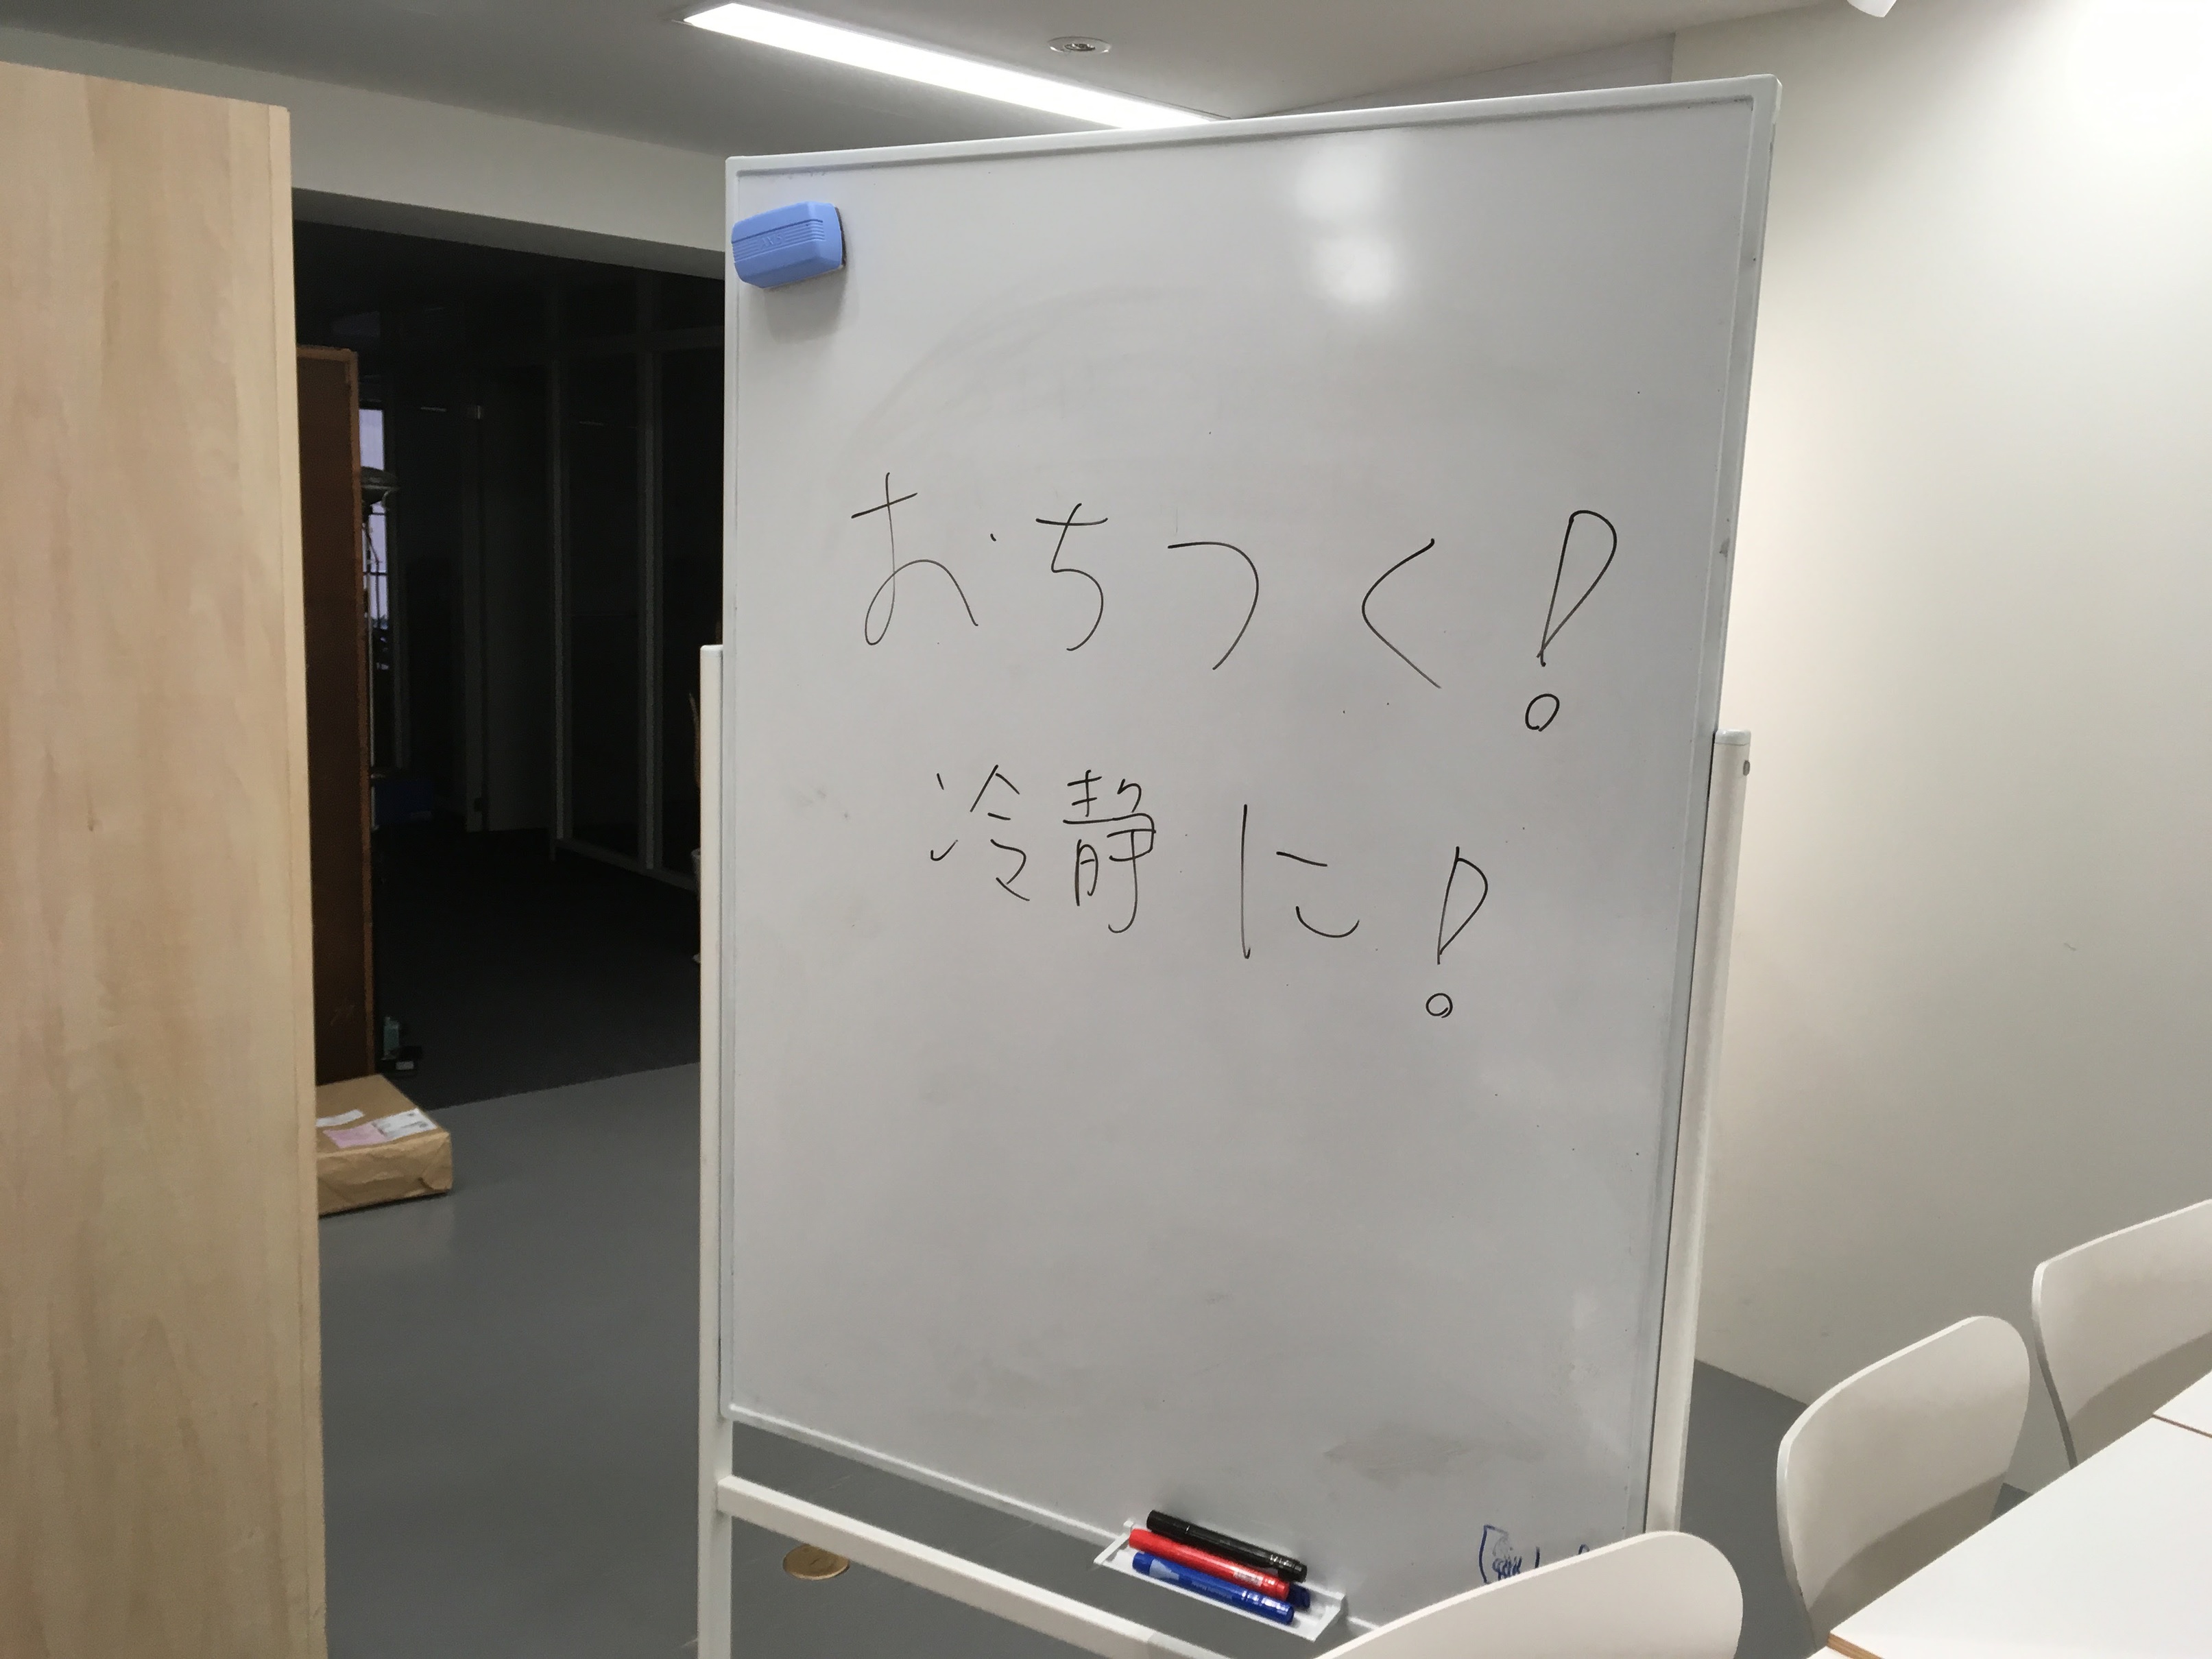 おちつく!
冷静に!